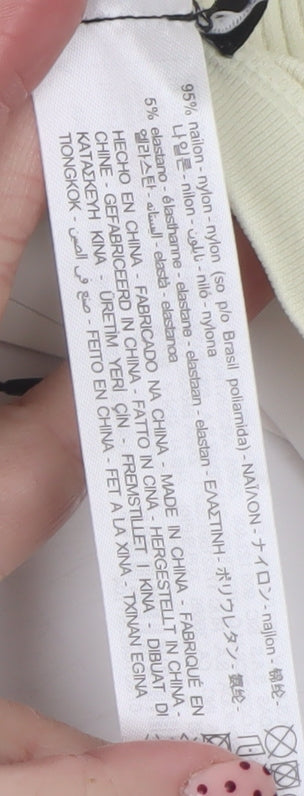 95% nailon - nylon - nylon (so p/o Brasil poliamida) - ΝΑΪΛΟΝ - ナイロン - najlon - 锦纶 -
나일론 - nilon - نايلون - niló - nylona
5% elastano - élasthanne - elastane - elastaan - elastan - ΕΛΑΣΤΙΝΗ - ポリウレタン - 氨纶
엘라스탄 - elastà - elastanoa
HECHO EN CHINA - FABRICADO NA CHINA - MADE IN CHINA - FABRIQUÉ EN
CHINE - GEFABRICEERD IN CHINA - FATTO IN CINA - HERGESTELLT IN CHINA -
ΚΑΤΑΣΚΕΥΗ ΚΙΝΑ - ÜRETİM YERİ ÇİN - FREMSTILLET I KINA - DIBUAT DI
TIONGKOK - صنع في الصين - FEITO EN CHINA - FET A LA XINA - TXINAN EGINA